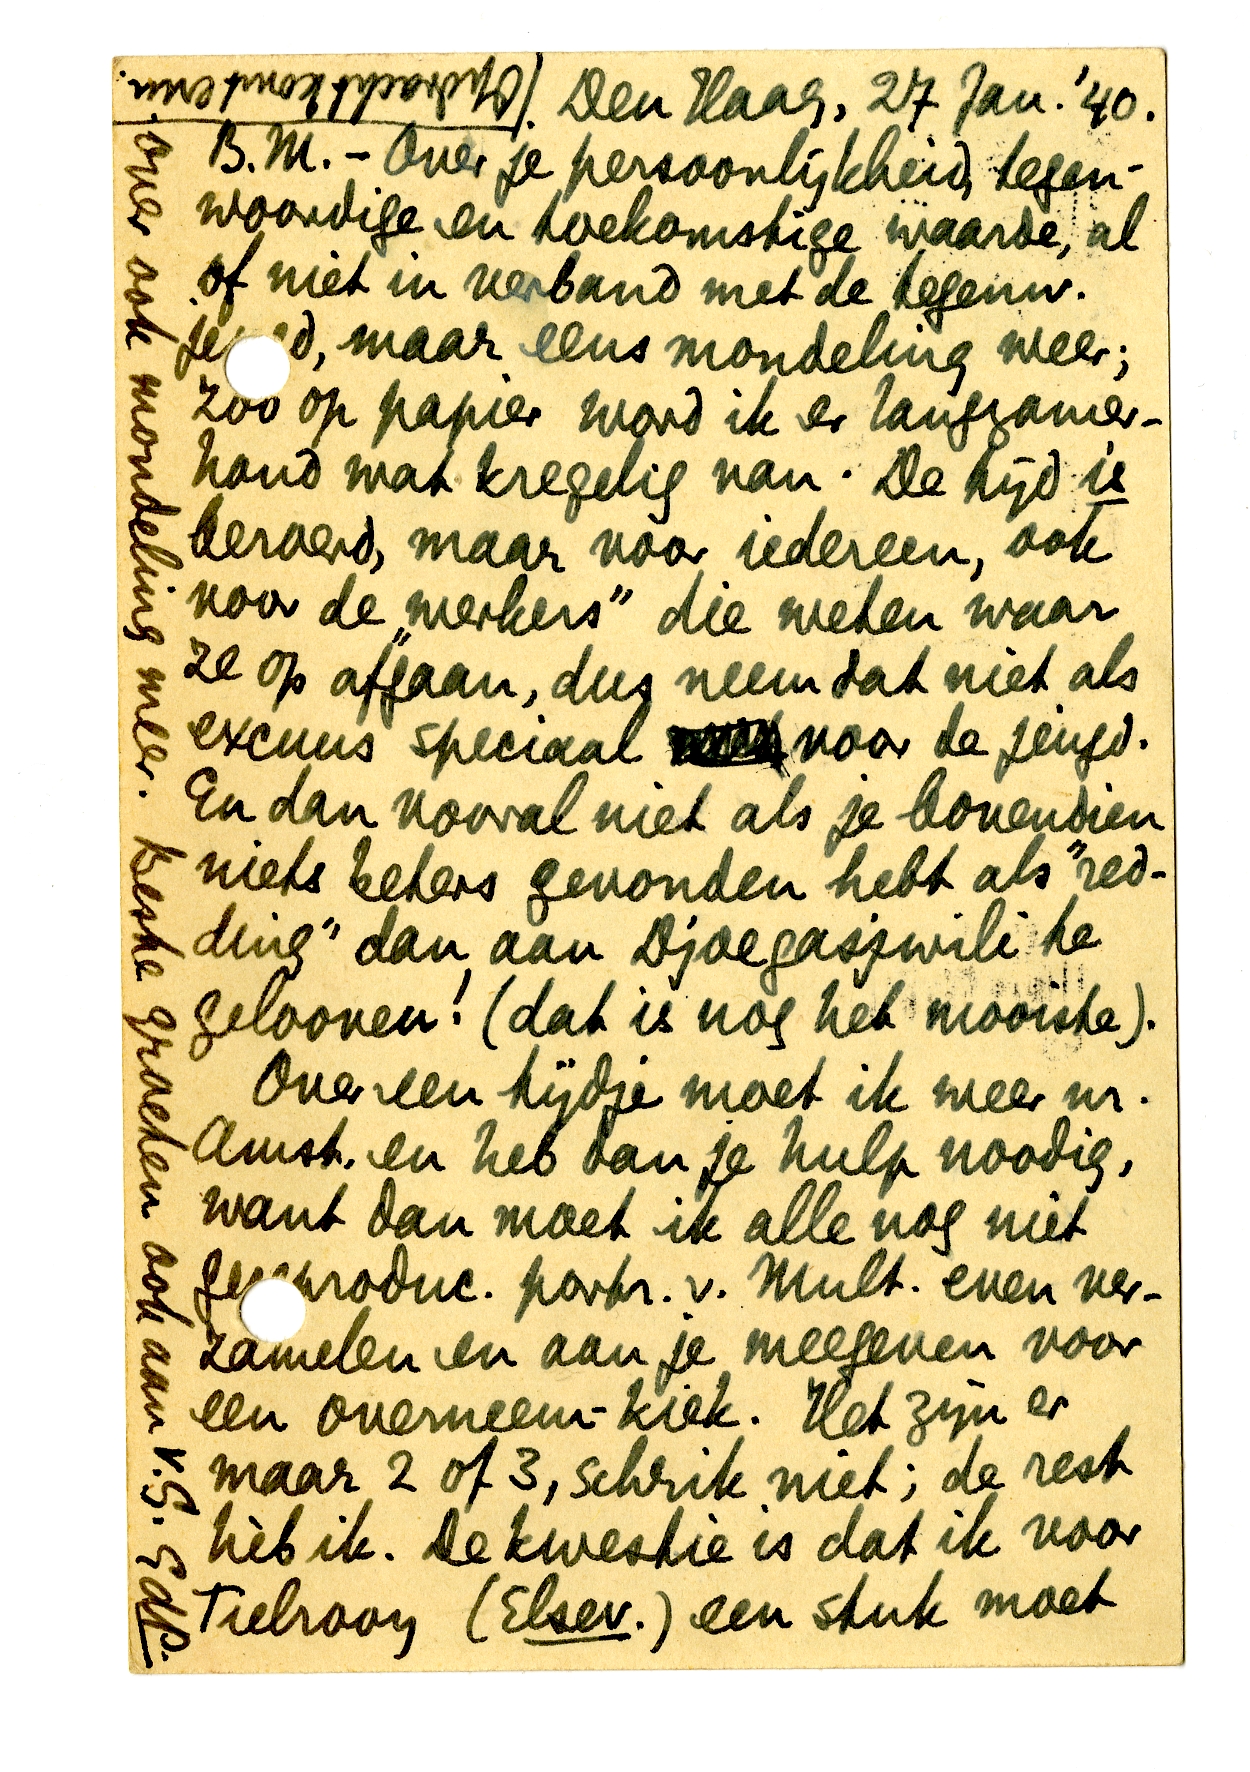 Den Haag, 27 Jan. '40.
B.M. – Over je persoonlijkheid, tegen-
woordige en toekomstige waarde, al
of niet in verband met de tegenw.
jeugd, maar eens mondeling weer;
zoo op papier word ik er langzamer-
hand wat kregelig van. De tijd is
beroerd, maar voor iedereen, ook
voor de „werkers” die weten waar
ze op „afgaan, dus neem dat niet als
excuus speciaal voor de jeugd.
En dan vooral niet als je bovendien
niets beters gevonden hebt als "red-
ding" dan aan Djoegasjwili te
gelooven! (dat is nog het mooiste).
Over een tijdje moet ik weer nr.
Amst. en heb dan je hulp noodig,
want dan moet ik alle nog niet
gereproduc. portr. v. Mult. even ver-
zamelen en aan je meegeven voor
een overneem-kiek. Het zijn er
maar 2 of 3, schrik niet; de rest
hèb ik. De kwestie is dat ik voor
Tielrooy (Elsev.) een stuk moet
over ook mondeling meer. Beste groeten ook aan v.S. EdP.
(Opdracht komt erin.